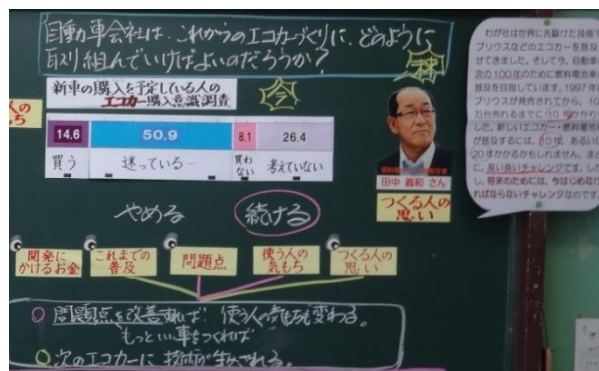 自動車会社は、これからのエコカーづくりに、どのように
取り組んでいけばよいのだろうか?
新車の購入を予定している人の
エコカー購入意識調査
今
人の
ち
14.6 50.9 8.1 26.4
買う 迷っている… 買わない 考えていない
田中 義和 さん
つくる人の
思い
やめる 続ける
開発に
かけるお金
これまでの
普及
問題点
使う人の
気もち
つくる人の
思い
問題点を改善すれば 使う人の気もちも変わる。
もっといい車をつくれば
次のエコカーに 技術が生かされる。
わが社は世界に先駆けた技術で
プリウスなどのエコカーを普及
せてきました。そして今、自動車の
次の100年のために燃料電池車の
普及を目指しています。1997年に
プリウスが発売されてから、10
万台売れるまでに10年かかり
した。新しいエコカー・燃料電池
が普及するには、10年、あるいは
20年かかるかもしれません。まさ
に、長い長いチャレンジです。しか
し、将来のために、今はじめなけ
ればならないチャレンジなのです。